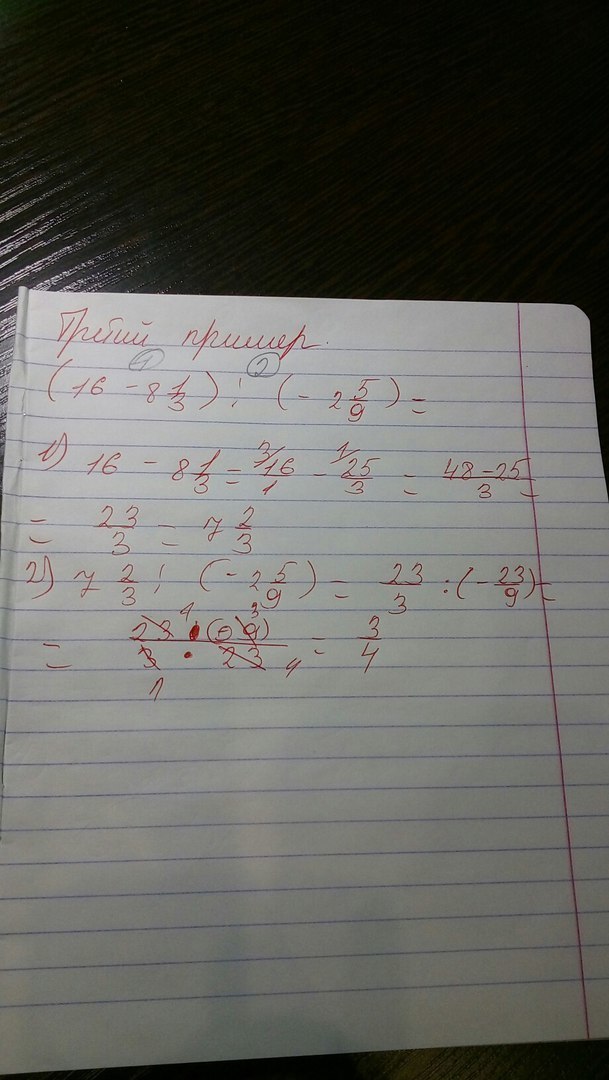 Третий пример.
① ②
(16 - 8 1/3) : (- 2 5/9) =
1) 16 - 8 1/3 = 3/ 16/1 - 1/ 25/3 = 48-25/3 =
= 23/3 = 7 2/3
2) 7 2/3 : (- 2 5/9) = 23/3 : (- 23/9) =
= 23 · (- 9)/3 · 23 = 3/4